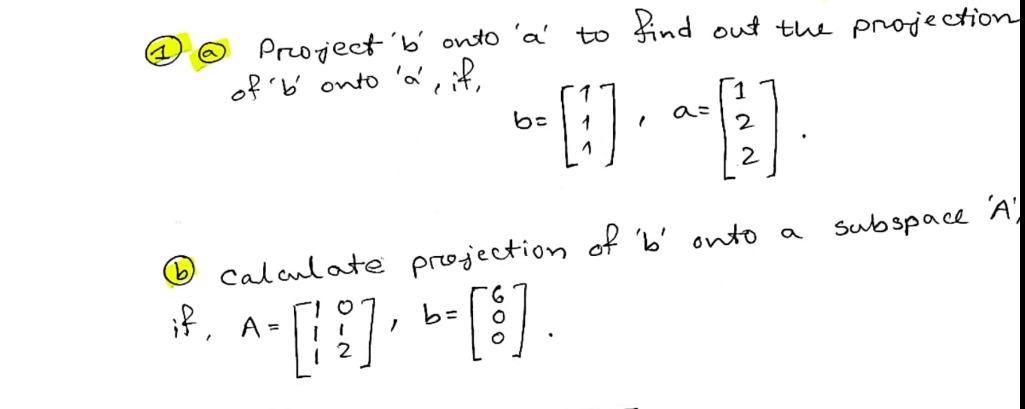 ① ⓐ Project 'b' onto 'a' to find out the projection
of 'b' onto 'a', if,
b = [1 1 1], a = [1 2 2].
ⓑ calculate projection of 'b' onto a subspace 'A',
if, A = [1 0; 1 1; 1 2], b = [6 0 0].